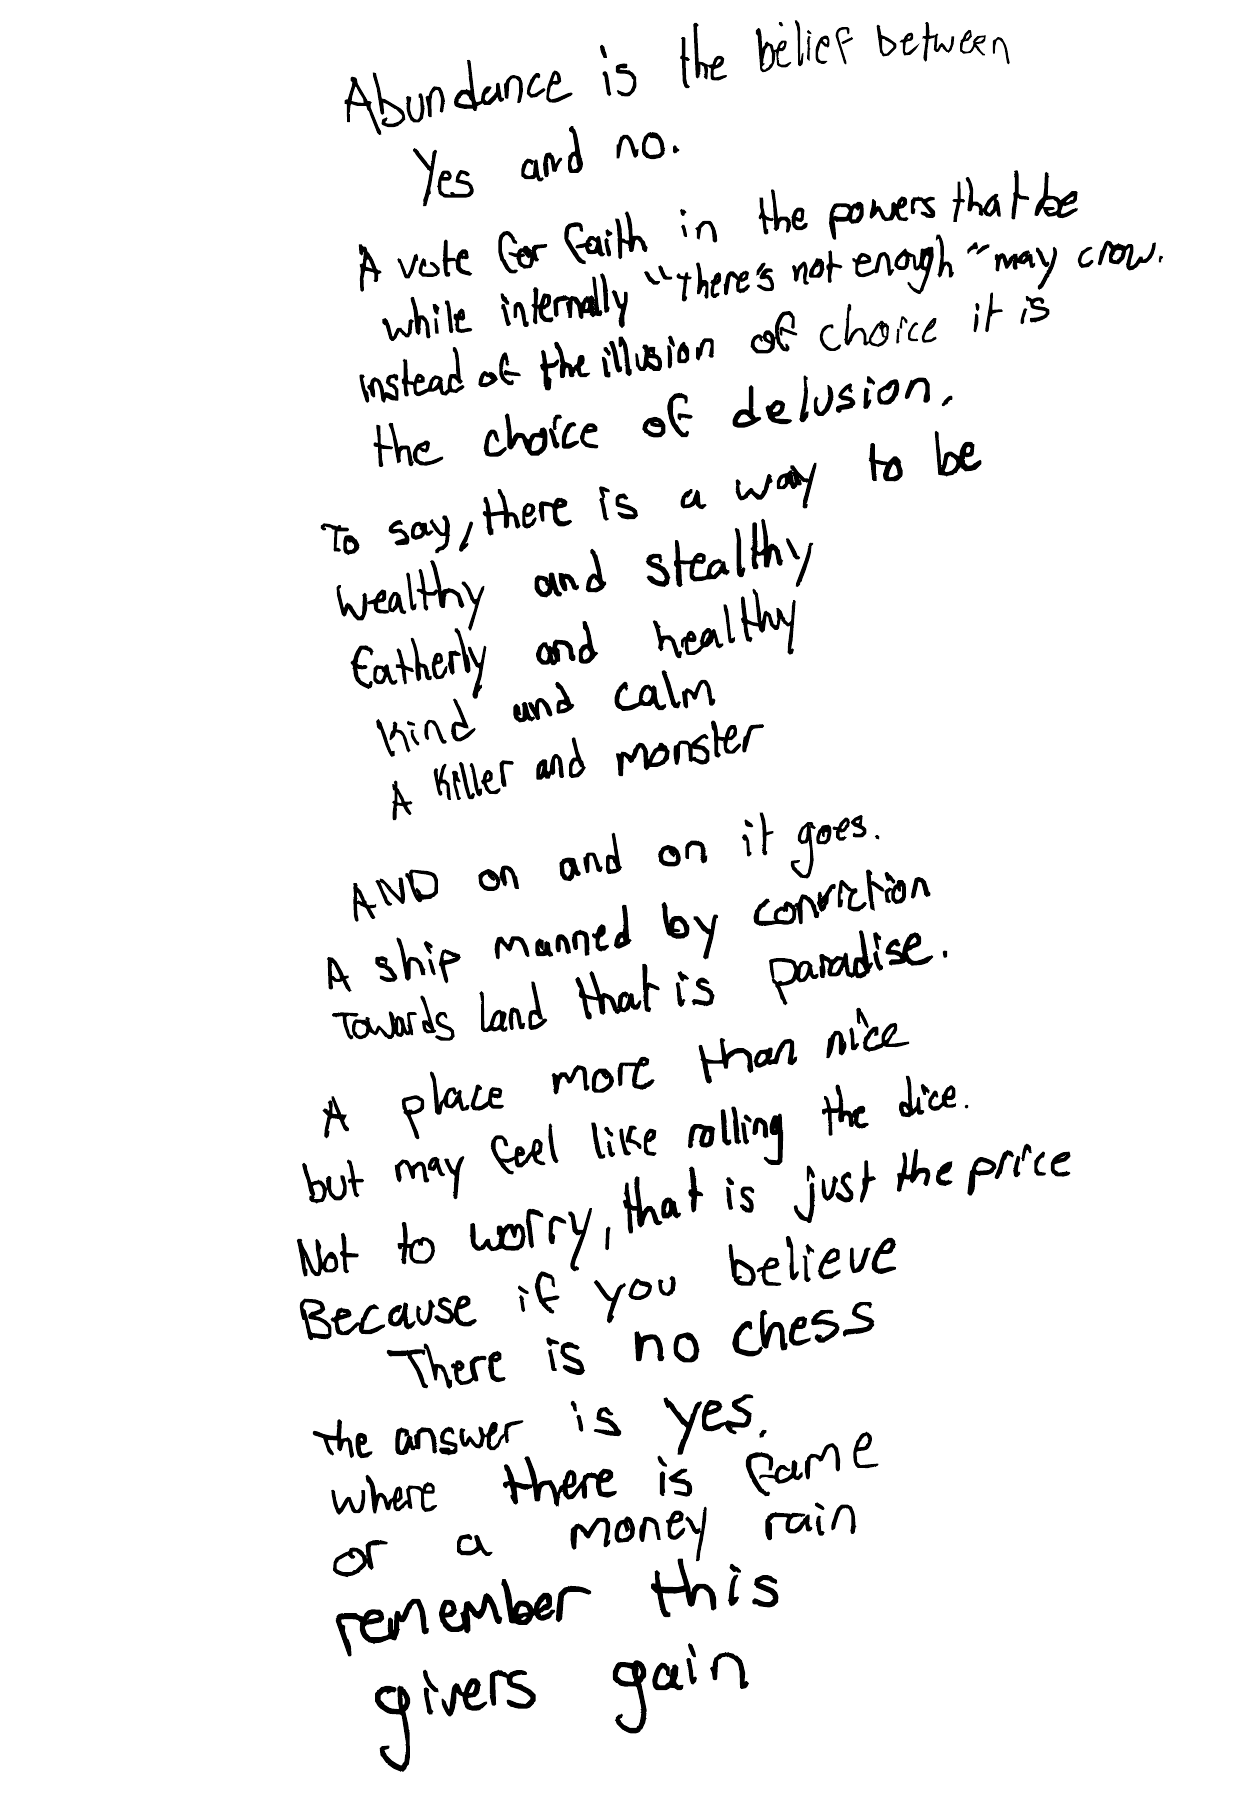 Abundance is the belief between
Yes and no.
A vote for faith in the powers that be
while internally "there's not enough" may crow.
instead of the illusion of choice it is
the choice of delusion.
To say, there is a way to be
wealthy and stealthy
fatherly and healthy
kind and calm
A killer and monster
AND on and on it goes.
A ship manned by conviction
Towards land that is paradise.
A place more than nice
but may feel like rolling the dice.
Not to worry, that is just the price
Because if you believe
There is no chess
the answer is yes.
where there is fame
or a money rain
remember this
givers gain